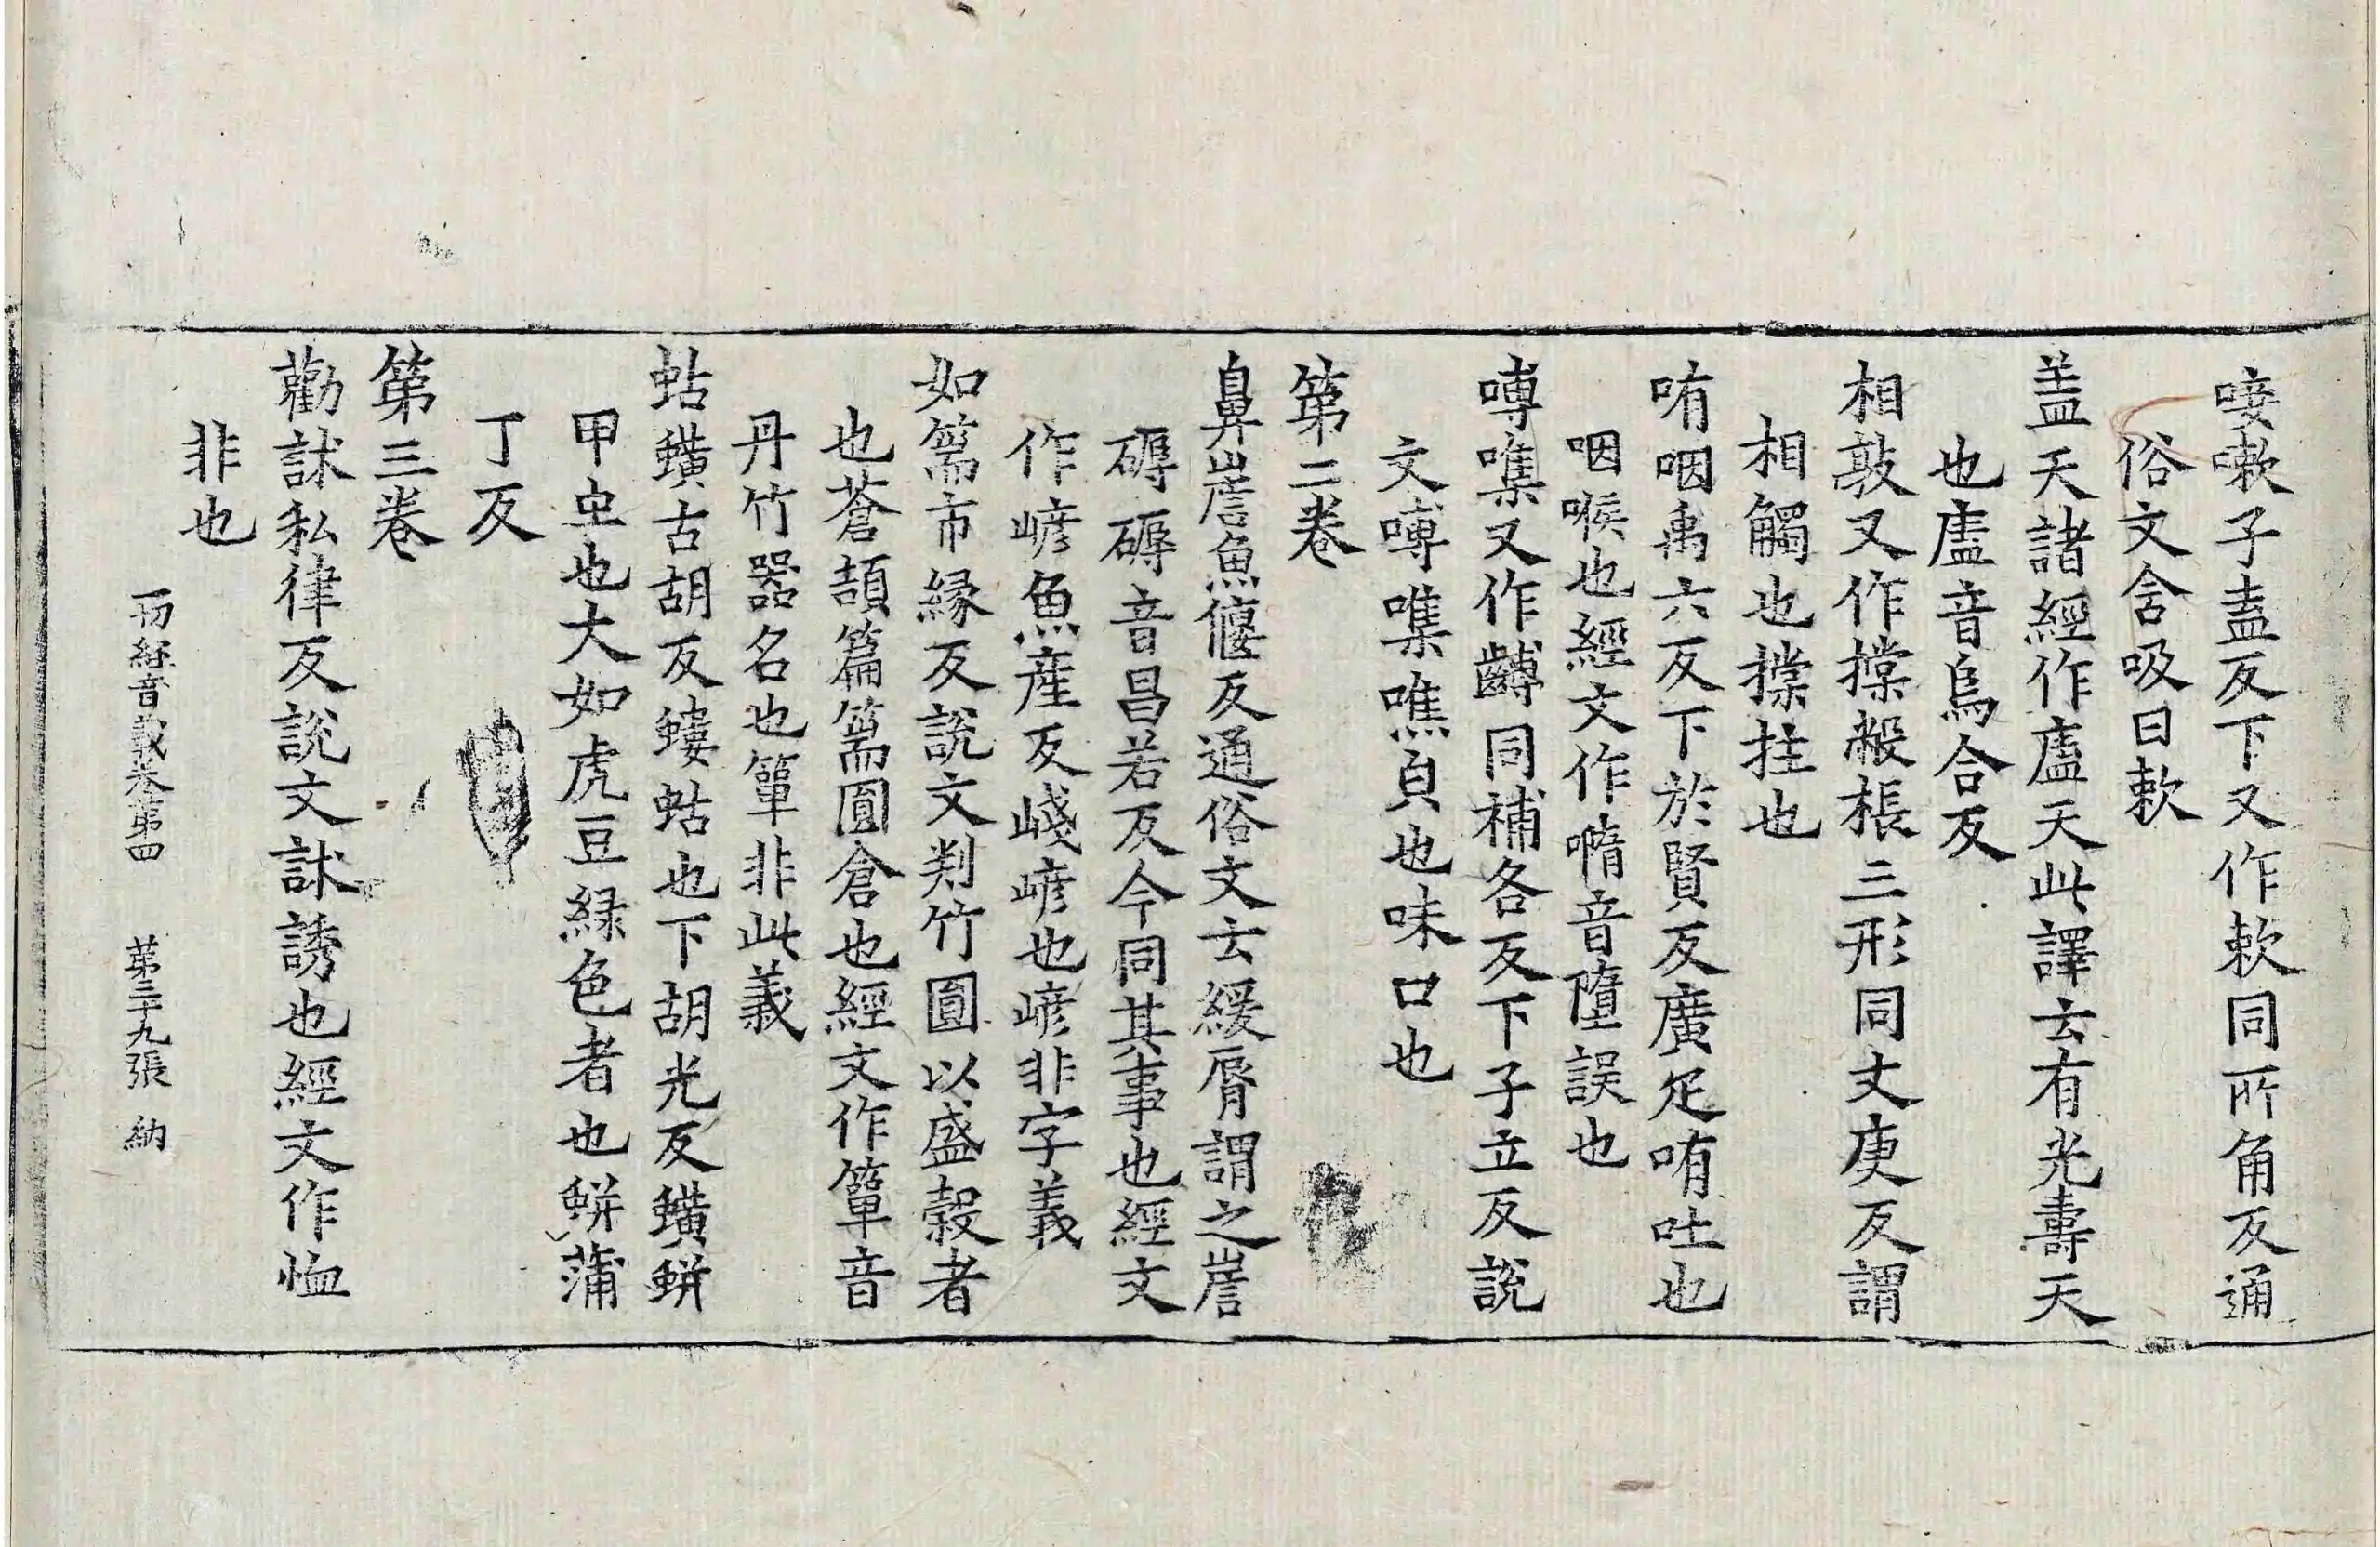 唼嗽子盍反下又作欶同所角反通
俗文含吸曰欶
盖天諸經作廅天此譯云有光壽天
也廅音烏合反
相敦又作㨃㲂棖三形同丈庚反謂
相觸也㨃拄也
哊咽禹六反下於賢反廣疋哊吐也
咽喉也經文作㗏音墮誤也
噂噍又作䶈同補各反下子立反說
文噂噍噍皃也味口也
第二卷
鼻㠋魚偃反通俗文云緩脣謂之㠋
磾磾音昌若反今同其事也經文
作嵃魚産反㟞嵃也嵃非字義
如篅市緣反說文判竹圓以盛穀者
也蒼頡篇篅圓倉也經文作簞音
丹竹器名也簞非此義
蛄䗣古胡反螻蛄也下胡光反䗣蛢
甲虫也大如虎豆緑色者也蛢蒲
丁反
第三卷
勸訹私律反說文訹誘也經文作恤
非也
一切經音義卷第四 第三十九張 納